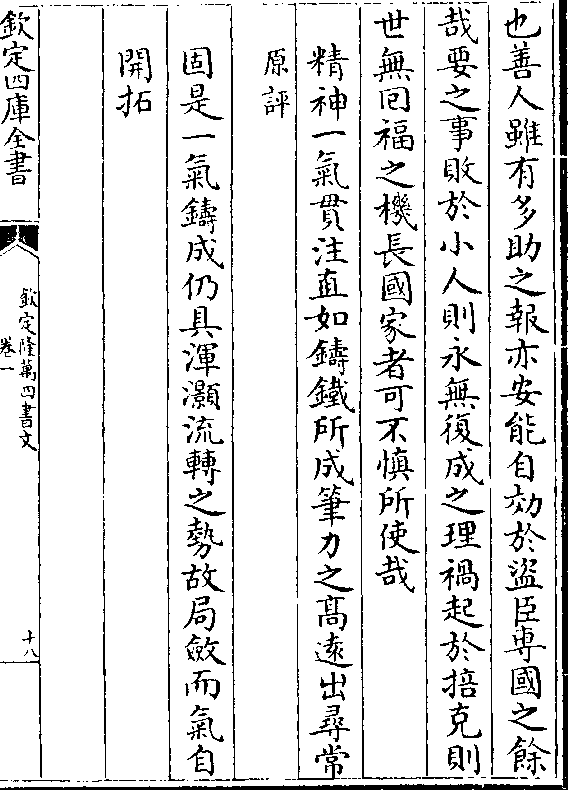 也善人雖有多助之報亦安能自効於盜臣專國之餘
哉要之事敗於小人則永無復成之理禍起於掊克則
世無囘福之機長國家者可不慎所使哉
精神一氣貫注直如鑄鐵所成筆力之髙遠出尋常
原評
固是一氣鑄成仍具渾灝流轉之勢故局斂而氣自
開拓
欽定四庫全書
欽定隆萬四書文
卷一
十八